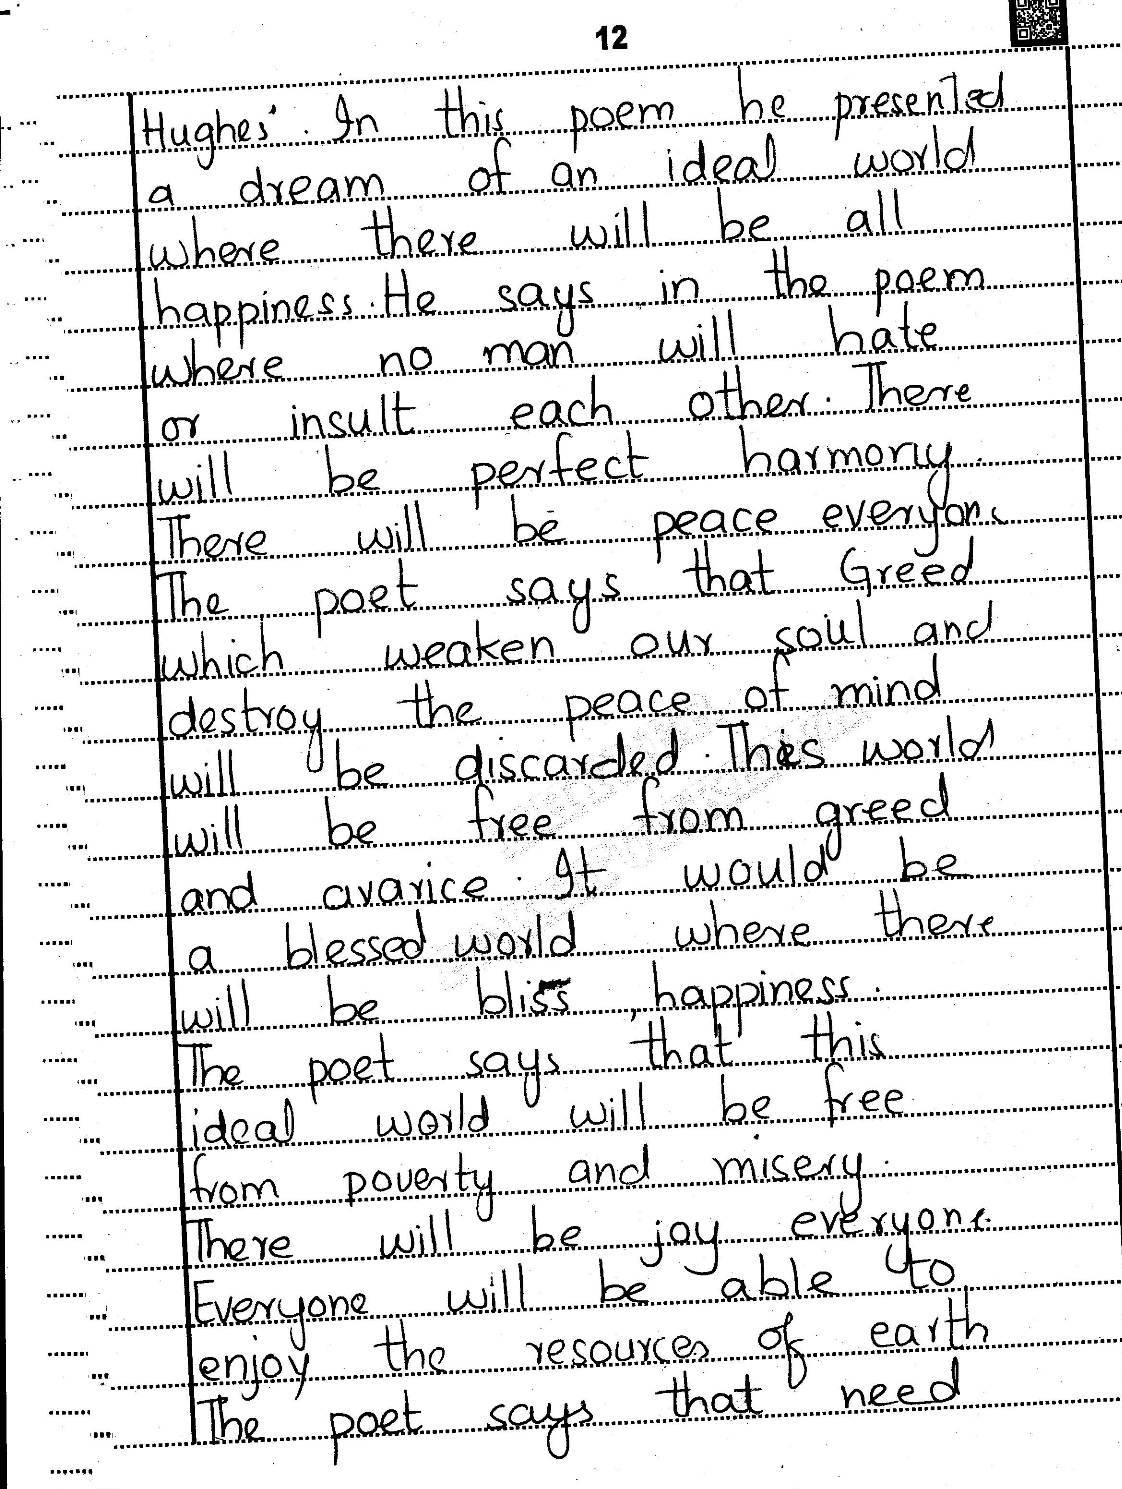 12
Hughes'. In this poem he presented
a dream of an ideal world
where there will be all
happiness. He says in the poem
where no man will hate
or insult each other. There
will be perfect harmony.
There will be peace everyone
The poet says that Greed
which weaken our soul and
destroy the peace of mind
will be discarded. This world
will be free from greed
and avarice. It would be
a blessed world where there
will be bliss, happiness.
The poet says that this
ideal world will be free
from poverty and misery.
There will be joy everyone.
Everyone will be able to
enjoy the resources of earth
The poet says that need